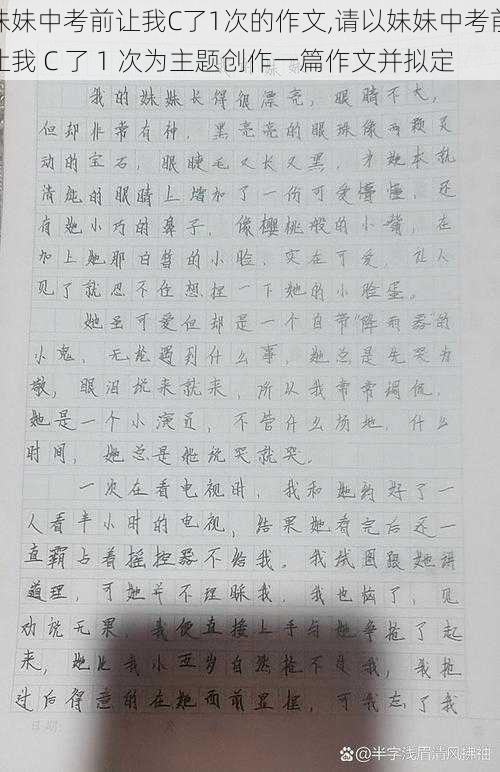 妹妹中考前让我C了1次的作文,请以妹妹中考前
让我 C 了 1 次为主题创作一篇作文并拟定
我的妹妹长得很漂亮，眼睛不大，
但却非常有神，黑亮亮的眼珠像两颗灵
动的宝石，眼睫毛又长又黑，为她本就
清纯的眼睛上增加了一份可爱懵懂，还
有她小巧的鼻子，像樱桃般的小嘴，在
加上她那白皙的小脸，实在可爱，让人
见了就忍不住想捏一下她的小脸蛋。
她虽可爱但却是一个自带“降雨器”的
小鬼，无论遇到什么事，她总是先哭为
敬，眼泪说来就来，所以我常常调侃，
她是一个小演员，不管什么场地，什么
时间，她总是能说哭就哭。
一次在看电视时，我和她约好了一
人看半小时的电视，结果她看完后还一
直霸占着摇控器不给我。我试图跟她讲
道理，可她并不理睬我，我也恼了，见
劝说无果，我便直接上手与她争抢了起
来，她比我小五岁自然抢不过我，我抢
过后得意的在她面前显摆，可我忘了我
日期：
@半字浅眉清风拂袖